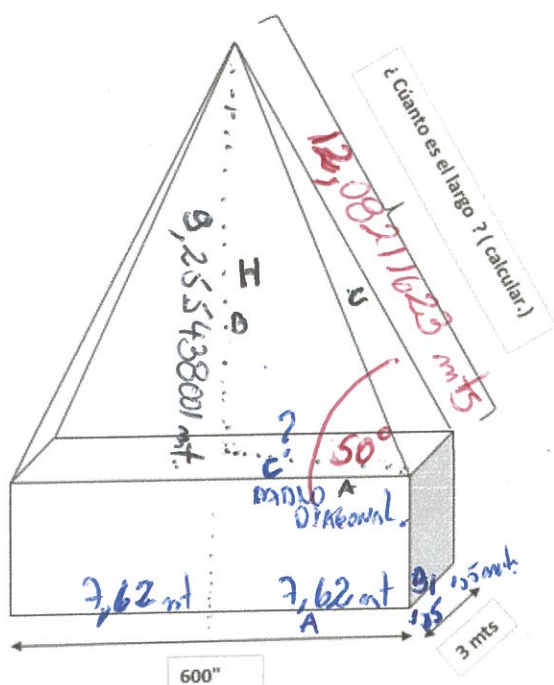 ¿ Cúanto es el largo ? ( calcular.)
12,08211623 mts
H
B
9,255438001 mt.
c
?
C'
50°
RADIO A
DIAGONAL.
7,62 mt
7,62 mt
A
B1
1,5 mt.
1,5
3 mts
600"